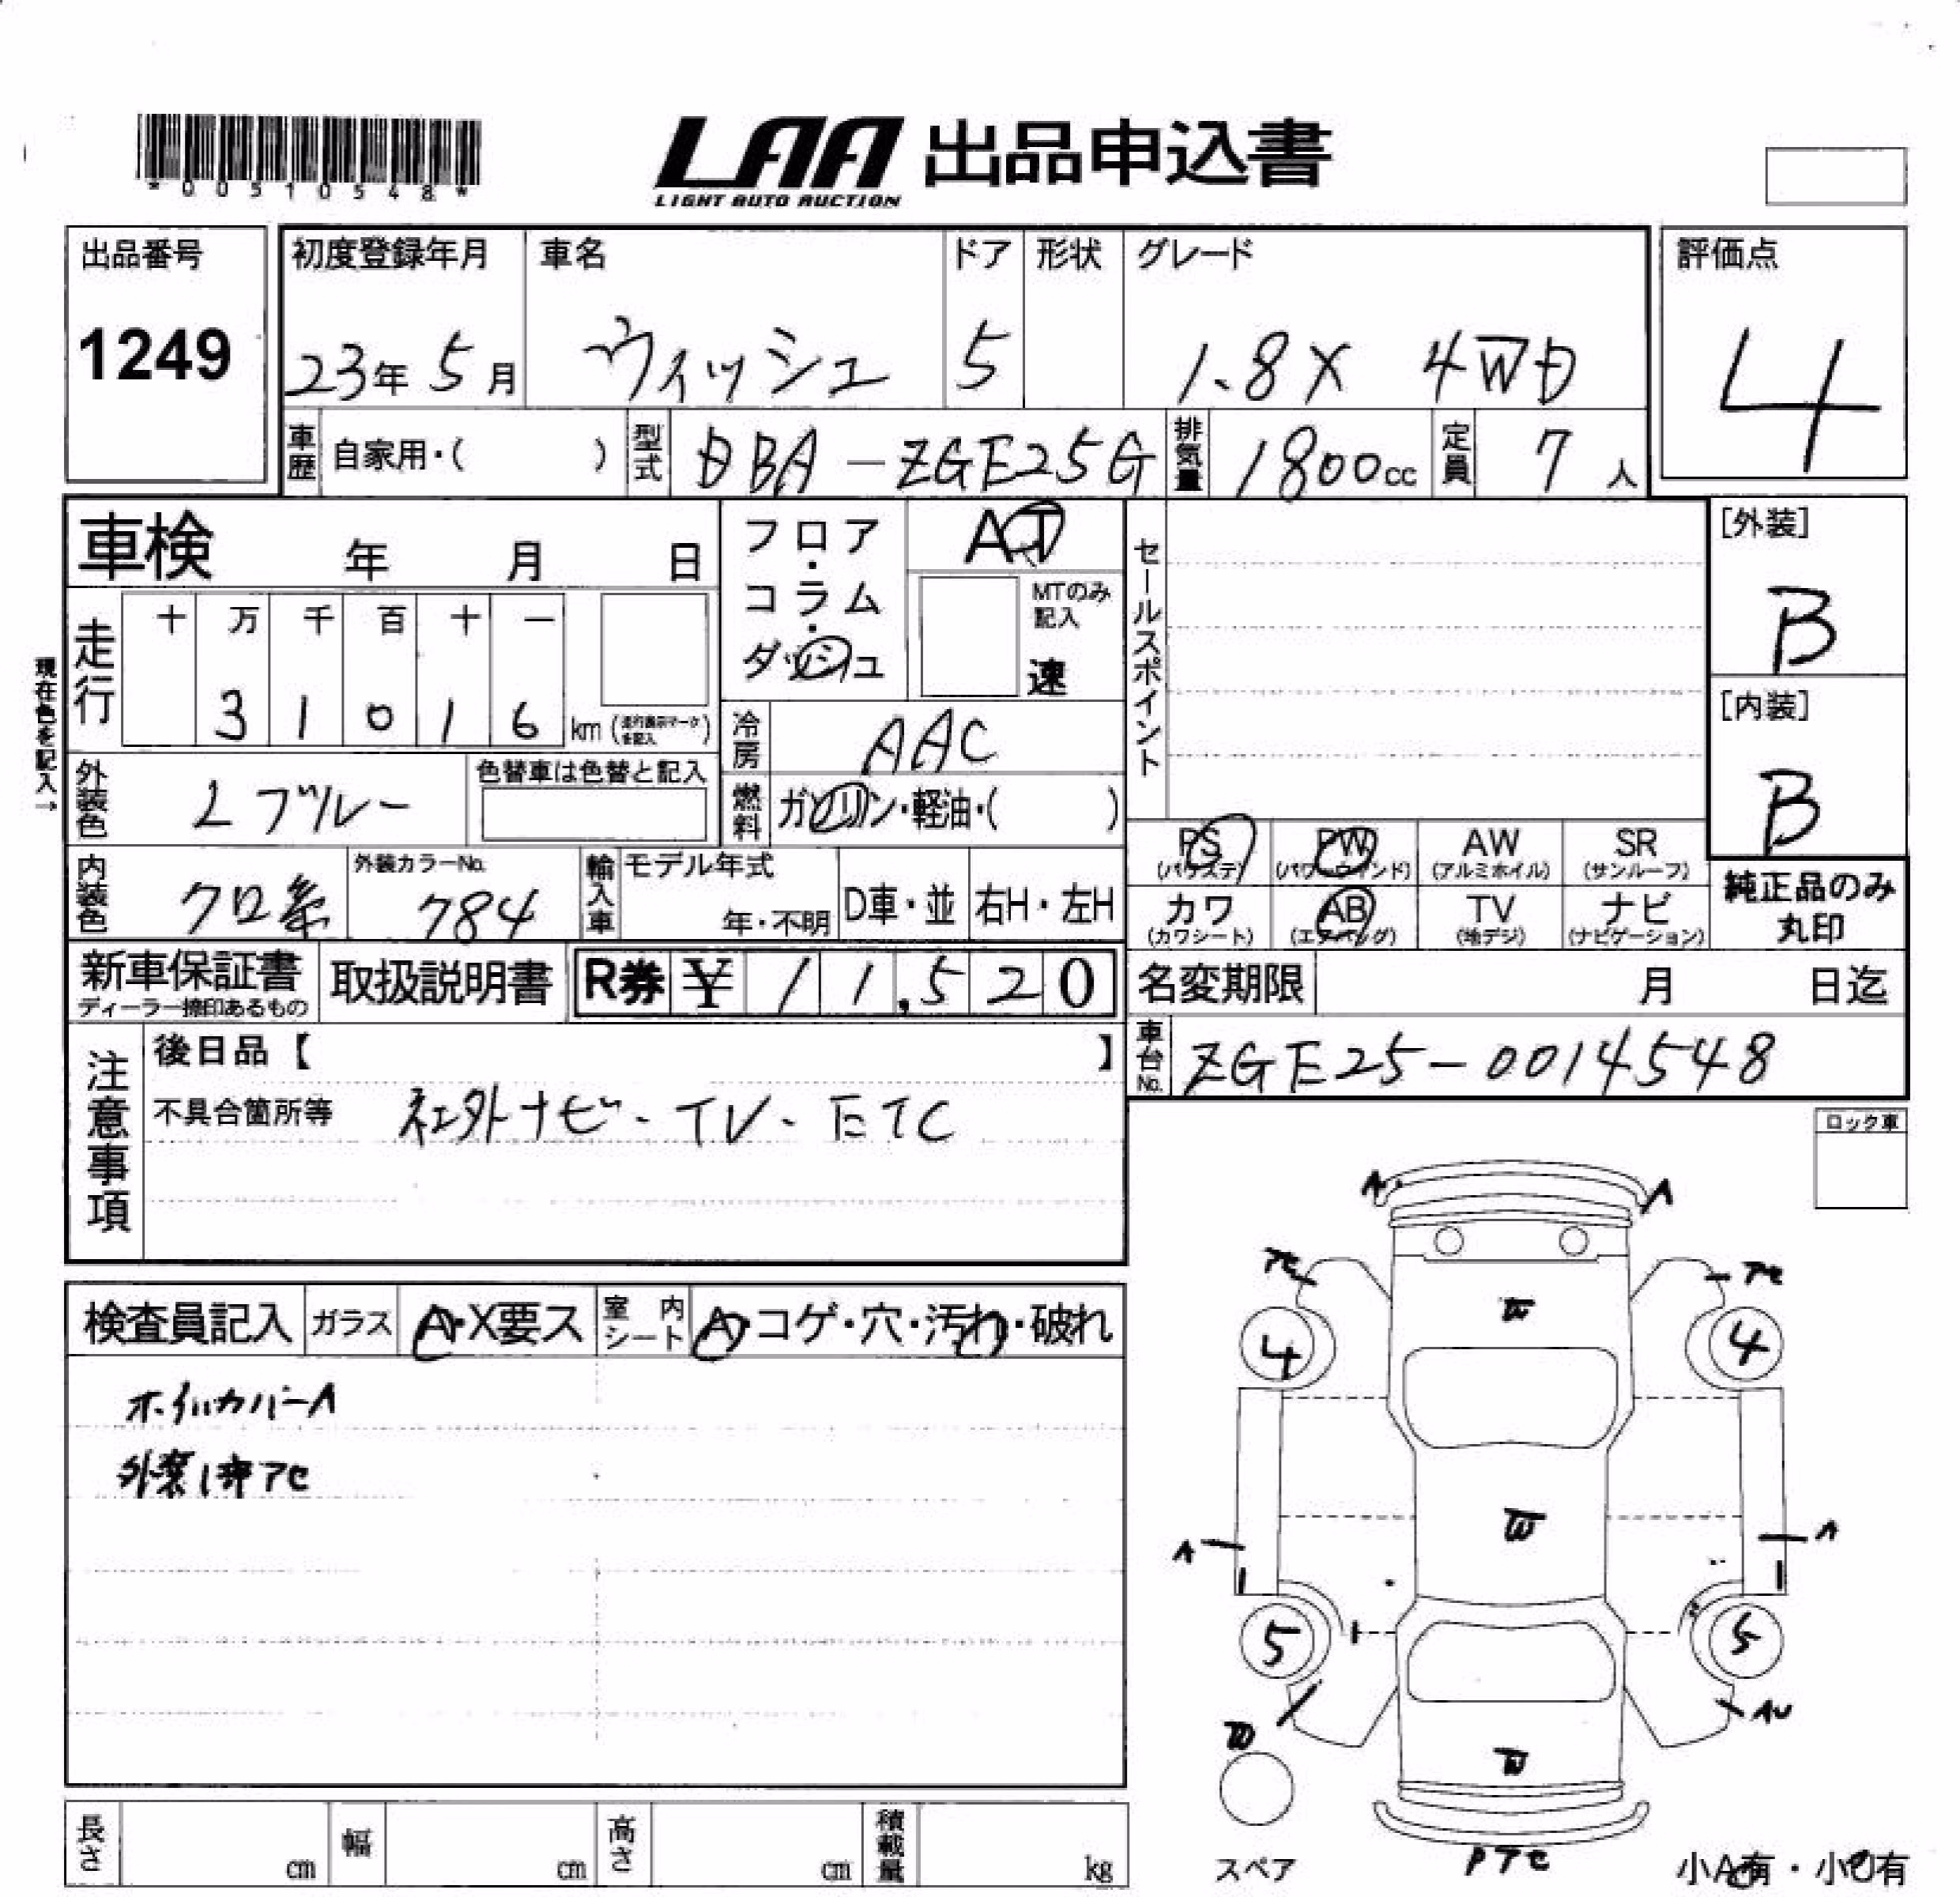 *00510548*
LAA 出品申込書
LIGHT AUTO AUCTION
出品番号 初度登録年月 車名 ドア 形状 グレード 評価点
1249 23年 5月 ヴィッシュ 5 1.8X 4WD 4
車歴 自家用・( ) 型式 DBA-ZGE25G 排気量 1800cc 定員 7人
車検 年 月 日
フロア・コラム・ダッシュ
AT
MTのみ記入
速
セールスポイント
[外装]
B
[内装]
B
現在色を記入→
走行 十 万 千 百 十 一
3 1 0 1 6 km (走行表示マークを記入)
冷房 AAC
外装色 Lブルー 色替車は色替と記入
燃料 ガソリン・軽油・( )
PS PW AW SR
(パワステ) (パワーウィンド) (アルミホイル) (サンルーフ)
カワ AB TV ナビ
(カワシート) (エアバッグ) (地デジ) (ナビゲーション)
純正品のみ
丸印
内装色 クロ系 外装カラーNo. 784 輸入車 モデル年式 年・不明 D車・並 右H・左H
新車保証書 取扱説明書 R券 ¥ 11,520
ディーラー捺印あるもの
名変期限 月 日迄
車台No. ZGE25-0014548
注意事項
後日品【 】
不具合箇所等 社外ナビ・TV・ETC
ロック車
検査員記入 ガラス A・X要ス 室内シート A・コゲ・穴・汚れ・破れ
ホイルカバーA
A A
アセ アセ
W
4 4
W
A A
5 5
W AU
W
スペア Pアセ 小A有・小U有
長さ cm 幅 cm 高さ cm 積載量 kg